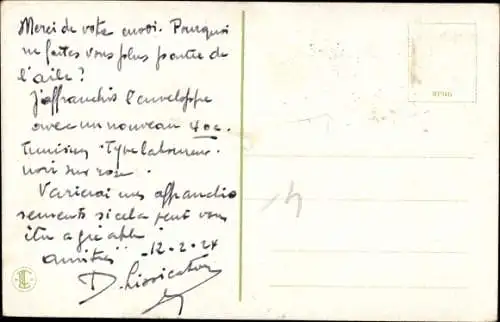 Merci de votre envoi. Pourquoi
ne faites vous plus partie de
l'aile ?
J'affranchis l'enveloppe
avec un nouveau 40c.
tunisien. Type laboureur.
noir sur rose.
Varierai mes affranchis
sements si cela peut vous
être agréable
amitiés -12-2-24
D.